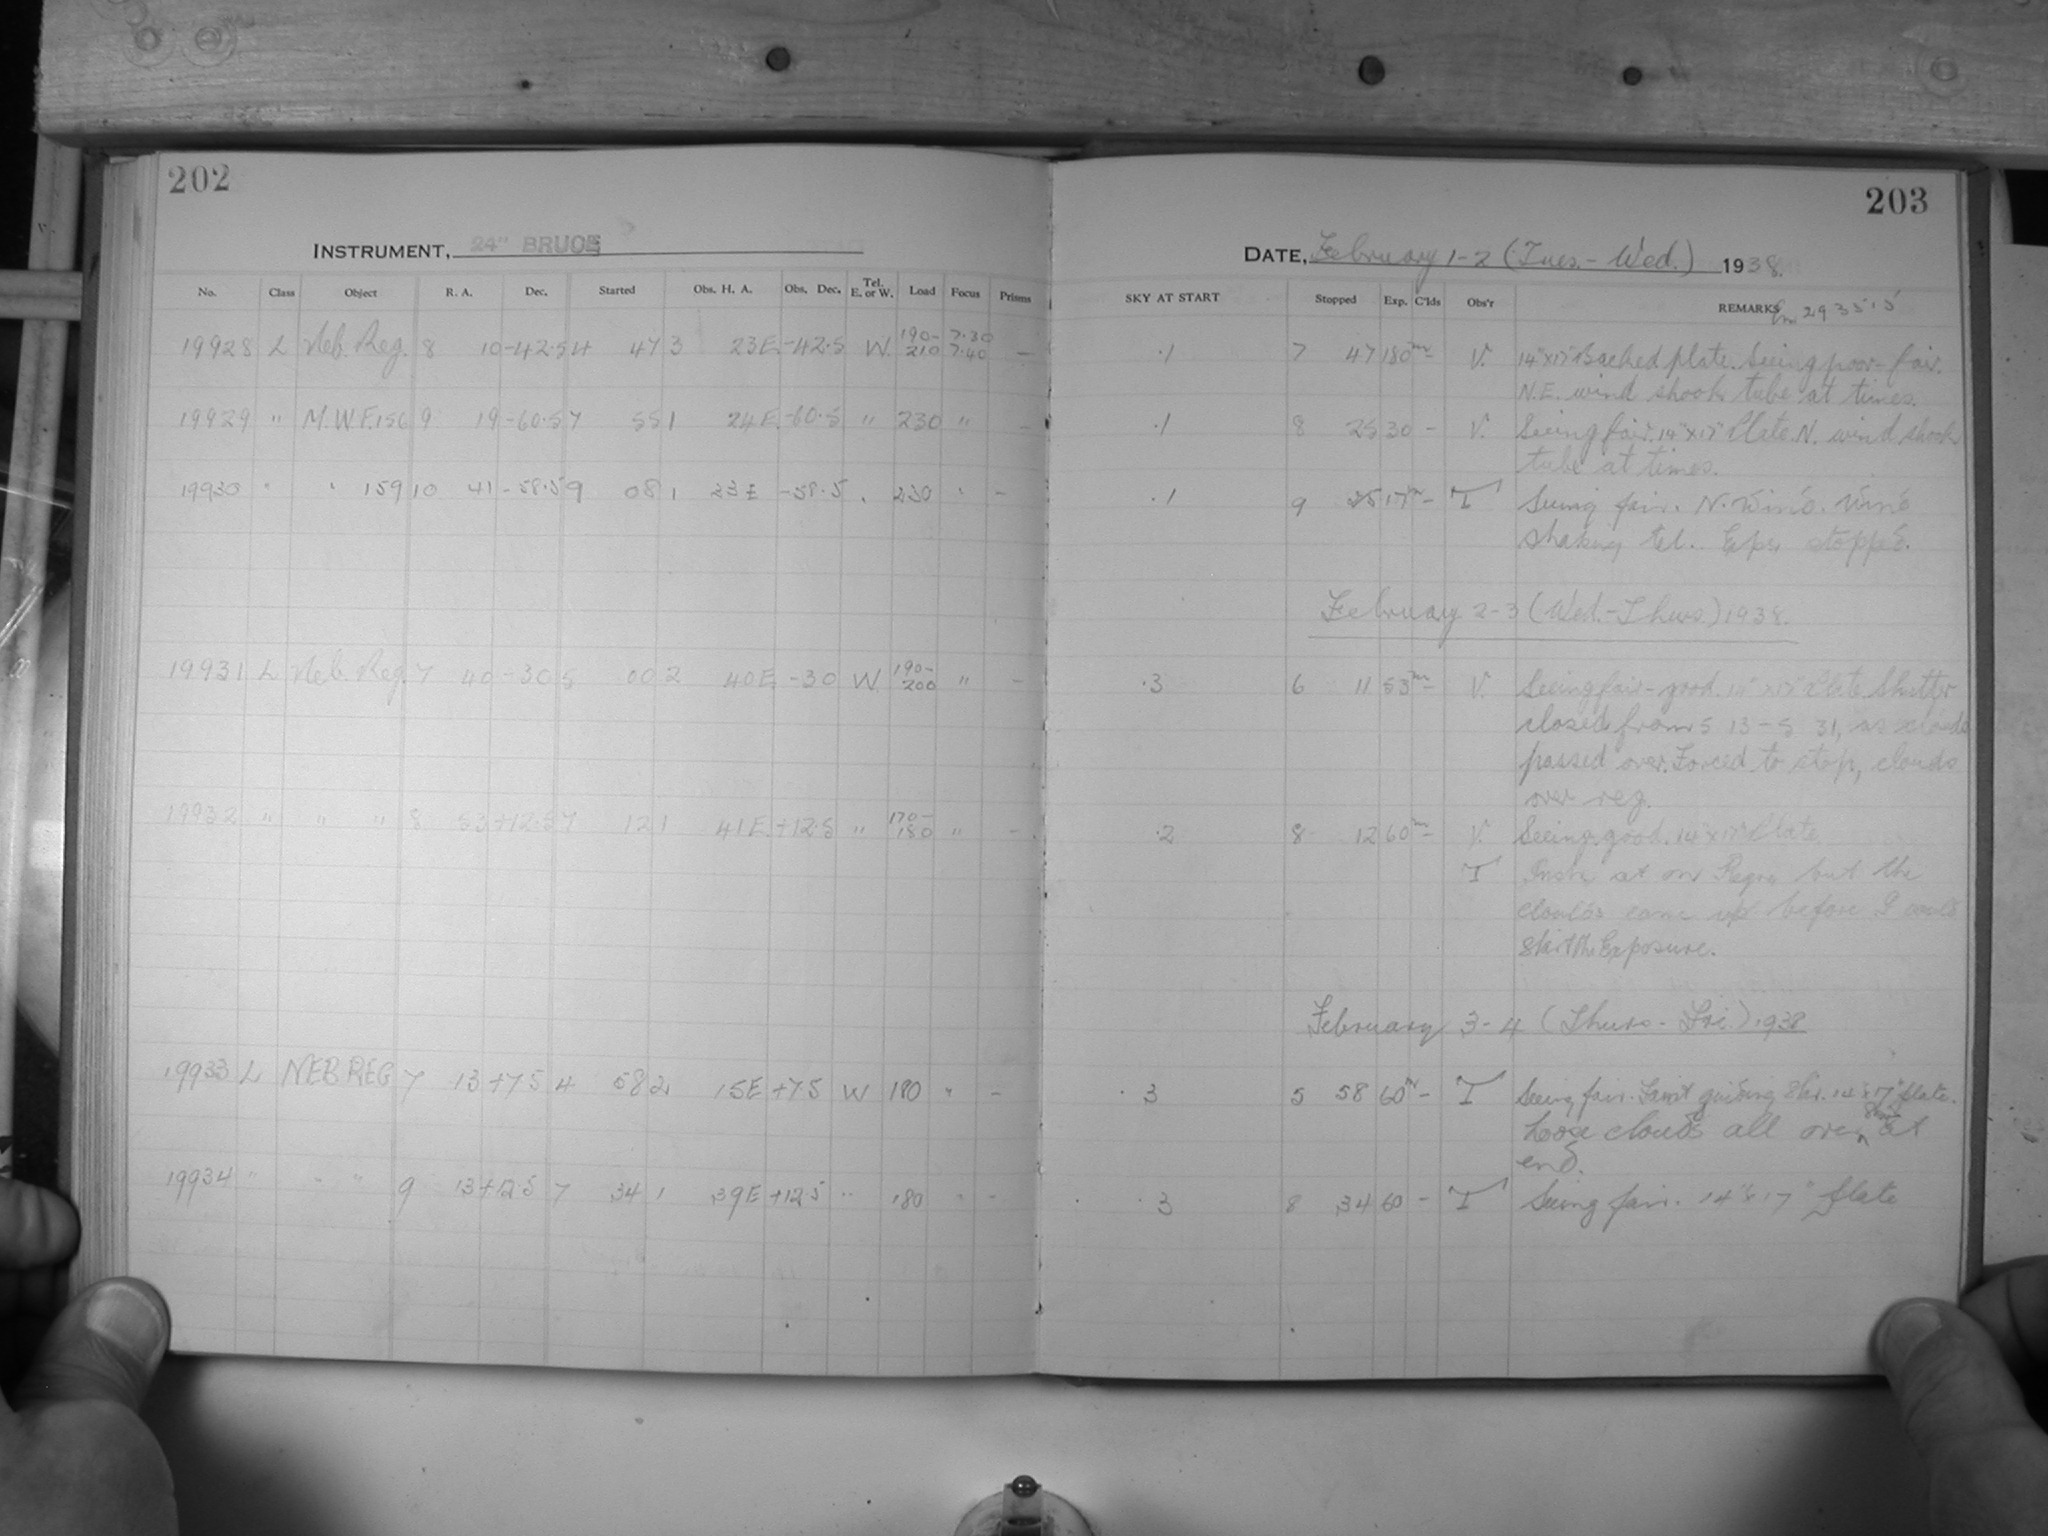 202
203
INSTRUMENT, 24" BRUCE
DATE, February 1-2 (Tues. - Wed.) 1938.
No. Class Object R. A. Dec. Started Obs. H. A. Obs. Dec. Tel. E. or W. Load Focus Prisms SKY AT START Stopped Exp. C'lds Obs'r REMARKS
19928 L Neb. Reg. 8 10 -42.5 4 47 3 23E -42.5 W. 190-210 7.30 7.40 - .1 7 47 180m - V. 14"x17" Backed plate. Seeing poor - fair.
N.E. wind shook tube at times.
19929 " M.W.F. 156 9 19 -60.5 7 55 1 24E -60.5 " 230 " - .1 8 25 30 - V. Seeing fair. 14"x17" Plate. N. wind shook
tube at times.
19930 " " 159 10 41 -58.5 9 08 1 23E -58.5 . 230 " - .1 9 25 17m - T Seeing fair. N. Wind. Wind
shaking tel. Expr stopped.
February 2-3 (Wed. - Thurs.) 1938.
19931 L Neb. Reg. 7 40 -30 5 00 2 40E -30 W. 190-200 " - .3 6 11 53m - V. Seeing fair - good. 14"x17" Plate. Shutter
closed from 5 13 - 5 31, as clouds
passed over. Forced to stop, clouds
over reg.
19932 " " " 8 53 +12.5 7 12 1 41E +12.5 " 170-180 " - .2 8 12 60m - V. Seeing good. 14"x17" Plate
T at one but the
clouds came up before I could
start the Exposure.
February 3-4 (Thurs - Fri.) 1938
19933 L NEB REG 7 13 +75 4 58 2 15E +75 W 180 " - .3 5 58 60m - T Seeing fair. Faint guiding Str. 14"x17" plate.
clouds all over at
end.
19934 " " " 9 13 +12.5 7 34 1 39E +12.5 " 180 " - .3 8 34 60 - T Seeing fair. 14"x17" plate